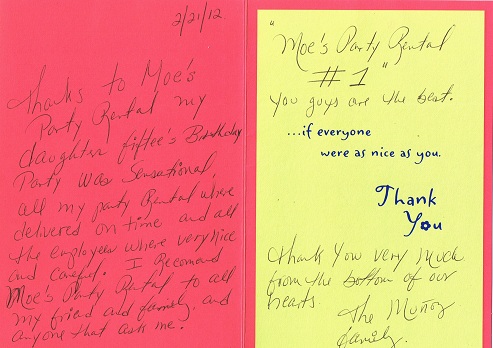 2/21/12
Thanks to Moe's
Party Rental my
daughter fiftee's Birthday
Party was Sensational,
all my party Rental where
delivered on time and all
the employees where very nice
and careful. I Recomend
Moe's Party Rental to all
my friend and family, and
anyone that asks me!
"Moe's Party Rental
#1"
You guys are the best.
...if everyone
were as nice as you.
Thank
You
Thank You very much
from the bottom of our
hearts.
The Muñoz
family.